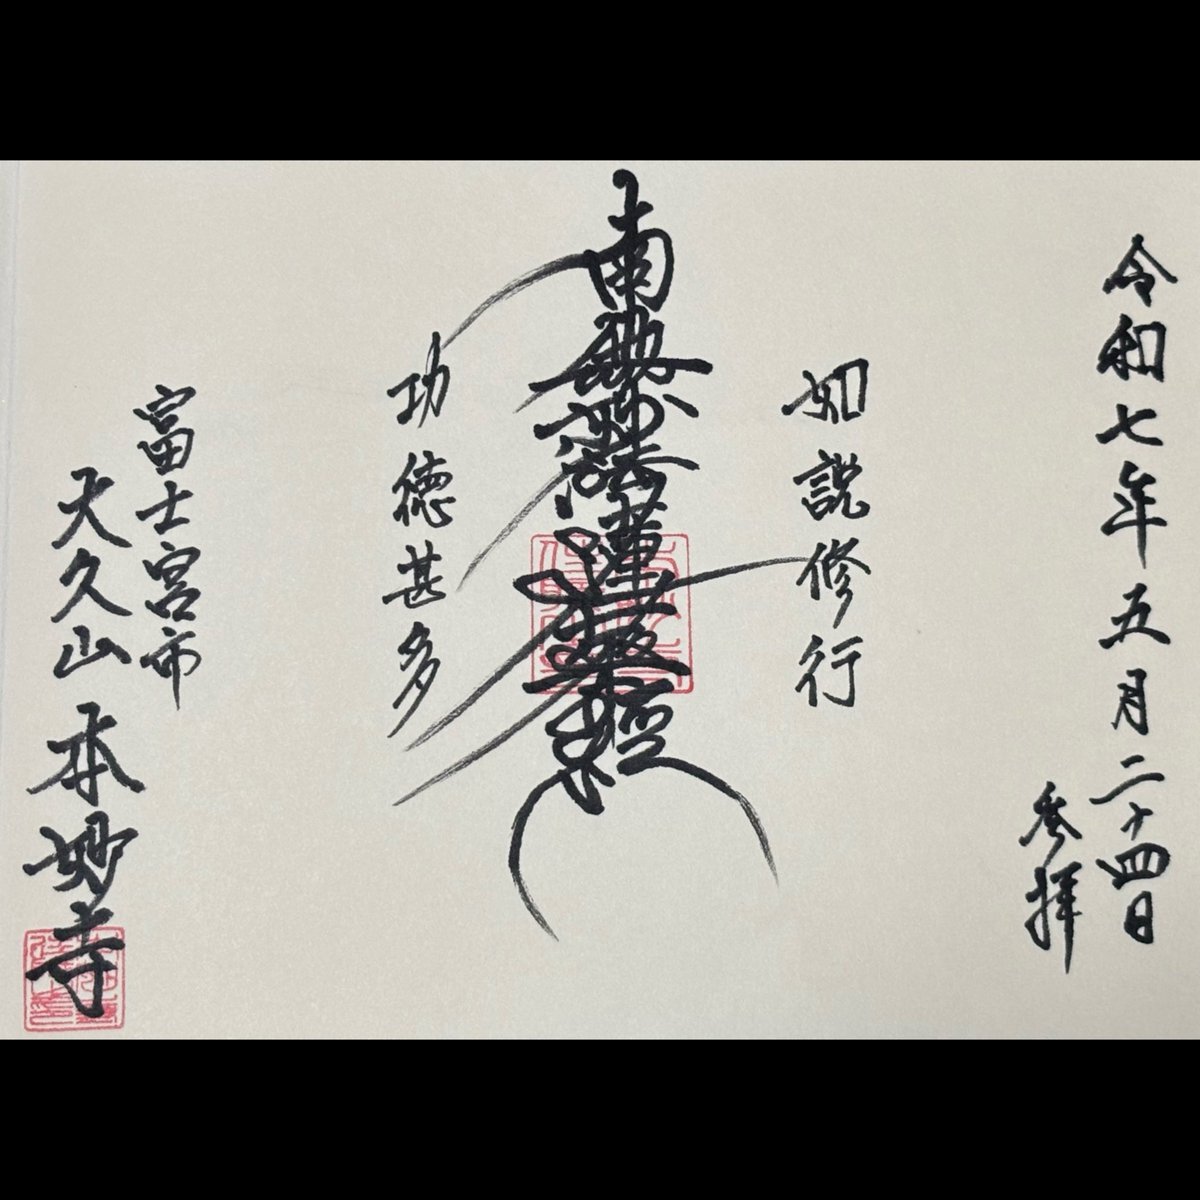 令和七年五月二十四日
参拝
如説修行
南無妙法蓮華経
功徳甚多
富士宮市
天久山
本妙寺